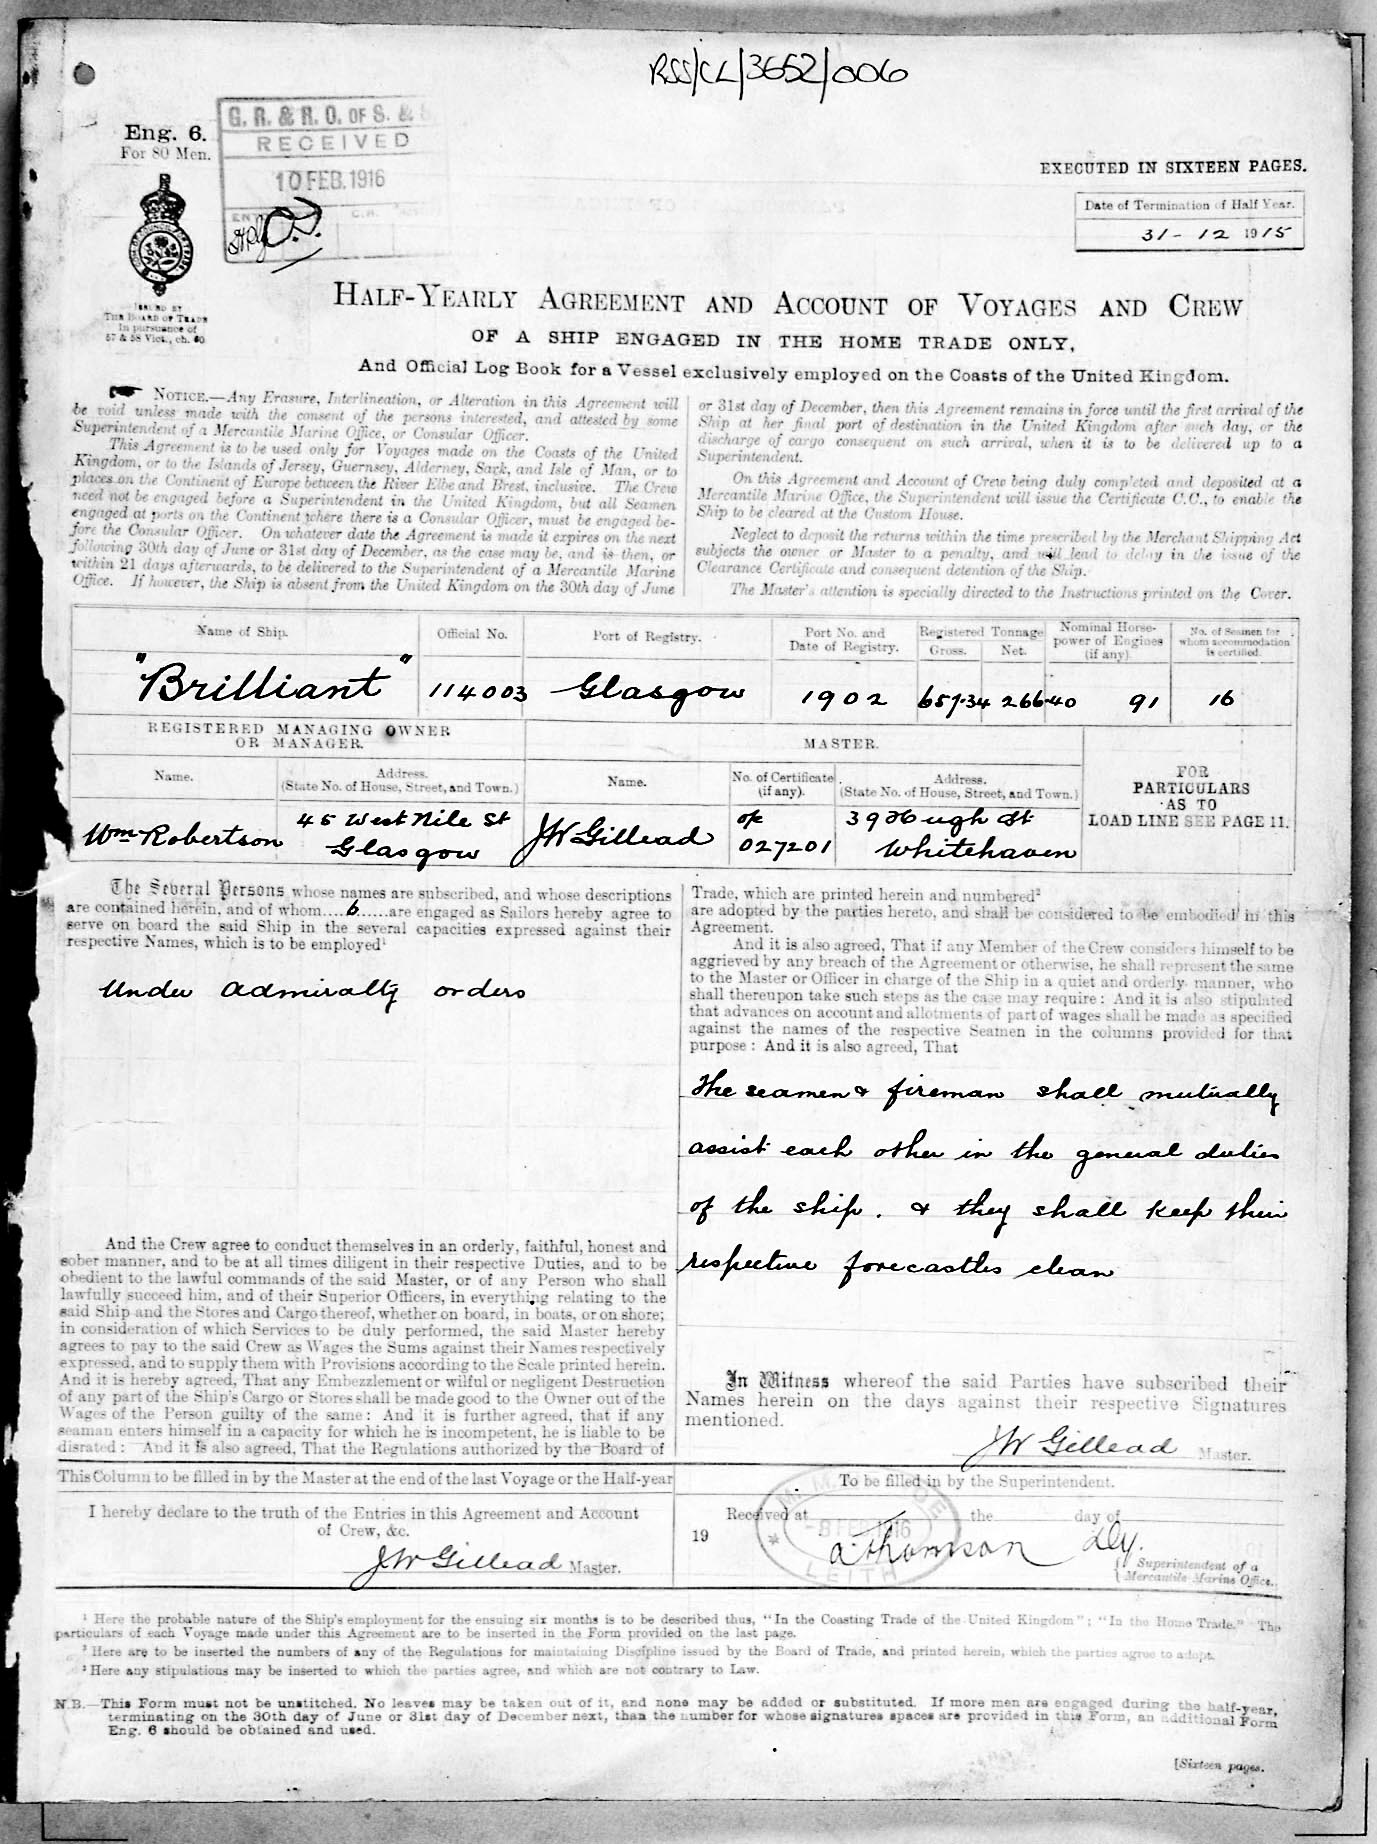 RSS/CL/3652/006
Eng. 6.
For 80 Men.
G. R. & R. O. OF S. &
RECEIVED
10 FEB. 1916
EXECUTED IN SIXTEEN PAGES.
Date of Termination of Half Year.
31 - 12 1915
ISSUED BY
THE BOARD OF TRADE
In pursuance of
57 & 58 Vict., ch. 60
HALF-YEARLY AGREEMENT AND ACCOUNT OF VOYAGES AND CREW
OF A SHIP ENGAGED IN THE HOME TRADE ONLY,
And Official Log Book for a Vessel exclusively employed on the Coasts of the United Kingdom.
NOTICE.—Any Erasure, Interlineation, or Alteration in this Agreement will
be void unless made with the consent of the persons interested, and attested by some
Superintendent of a Mercantile Marine Office, or Consular Officer.
This Agreement is to be used only for Voyages made on the Coasts of the United
Kingdom, or to the Islands of Jersey, Guernsey, Alderney, Sark, and Isle of Man, or to
places on the Continent of Europe between the River Elbe and Brest, inclusive. The Crew
need not be engaged before a Superintendent in the United Kingdom, but all Seamen
engaged at ports on the Continent where there is a Consular Officer, must be engaged be-
fore the Consular Officer. On whatever date the Agreement is made it expires on the next
following 30th day of June or 31st day of December, as the case may be, and is then, or
within 21 days afterwards, to be delivered to the Superintendent of a Mercantile Marine
Office. If however, the Ship is absent from the United Kingdom on the 30th day of June
or 31st day of December, then this Agreement remains in force until the first arrival of the
Ship at her final port of destination in the United Kingdom after such day, or the
discharge of cargo consequent on such arrival, when it is to be delivered up to a
Superintendent.
On this Agreement and Account of Crew being duly completed and deposited at a
Mercantile Marine Office, the Superintendent will issue the Certificate C.C., to enable the
Ship to be cleared at the Custom House.
Neglect to deposit the returns within the time prescribed by the Merchant Shipping Act
subjects the owner or Master to a penalty, and will lead to delay in the issue of the
Clearance Certificate and consequent detention of the Ship.
The Master's attention is specially directed to the Instructions printed on the Cover.
Name of Ship. Official No. Port of Registry. Port No. and Date of Registry. Registered Tonnage Gross. Net. Nominal Horse-power of Engines (if any) No. of Seamen for whom accommodation is certified.
"Brilliant" 114003 Glasgow 1902 657.34 266.40 91 16
REGISTERED MANAGING OWNER
OR MANAGER.
MASTER.
Name. Address. (State No. of House, Street, and Town.) Name. No. of Certificate (if any). Address. (State No. of House, Street, and Town.)
FOR
PARTICULARS
AS TO
LOAD LINE SEE PAGE 11.
Wm Robertson 45 West Nile St Glasgow JW Gillead 027201 39 Hugh St Whitehaven
The Several Persons whose names are subscribed, and whose descriptions
are contained herein, and of whom....6......are engaged as Sailors hereby agree to
serve on board the said Ship in the several capacities expressed against their
respective Names, which is to be employed¹
Under Admiralty orders
And the Crew agree to conduct themselves in an orderly, faithful, honest and
sober manner, and to be at all times diligent in their respective Duties, and to be
obedient to the lawful commands of the said Master, or of any Person who shall
lawfully succeed him, and of their Superior Officers, in everything relating to the
said Ship and the Stores and Cargo thereof, whether on board, in boats, or on shore;
in consideration of which Services to be duly performed, the said Master hereby
agrees to pay to the said Crew as Wages the Sums against their Names respectively
expressed, and to supply them with Provisions according to the Scale printed herein.
And it is hereby agreed, That any Embezzlement or wilful or negligent Destruction
of any part of the Ship's Cargo or Stores shall be made good to the Owner out of the
Wages of the Person guilty of the same: And it is further agreed, that if any
seaman enters himself in a capacity for which he is incompetent, he is liable to be
disrated: And it is also agreed, That the Regulations authorized by the Board of
Trade, which are printed herein and numbered²
are adopted by the parties hereto, and shall be considered to be embodied in this
Agreement.
And it is also agreed, That if any Member of the Crew considers himself to be
aggrieved by any breach of the Agreement or otherwise, he shall represent the same
to the Master or Officer in charge of the Ship in a quiet and orderly manner, who
shall thereupon take such steps as the case may require: And it is also stipulated
that advances on account and allotments of part of wages shall be made as specified
against the names of the respective Seamen in the columns provided for that
purpose: And it is also agreed, That
The seamen & fireman shall mutually
assist each other in the general duties
of the ship. & they shall keep their
respective forecastles clean
In Witness whereof the said Parties have subscribed their
Names herein on the days against their respective Signatures
mentioned.
JW Gillead Master.
This Column to be filled in by the Master at the end of the last Voyage or the Half-year
I hereby declare to the truth of the Entries in this Agreement and Account
of Crew, &c.
JW Gillead Master.
To be filled in by the Superintendent.
Received at the day of
19
LEITH
A Thomson Dy.
Superintendent of a
Mercantile Marine Office.
¹ Here the probable nature of the Ship's employment for the ensuing six months is to be described thus, "In the Coasting Trade of the United Kingdom"; "In the Home Trade." The
particulars of each Voyage made under this Agreement are to be inserted in the Form provided on the last page.
² Here are to be inserted the numbers of any of the Regulations for maintaining Discipline issued by the Board of Trade, and printed herein, which the parties agree to adopt.
³ Here any stipulations may be inserted to which the parties agree, and which are not contrary to Law.
N.B.—This Form must not be unstitched. No leaves may be taken out of it, and none may be added or substituted. If more men are engaged during the half-year,
terminating on the 30th day of June or 31st day of December next, than the number for whose signatures spaces are provided in this Form, an additional Form
Eng. 6 should be obtained and used.
[Sixteen pages.